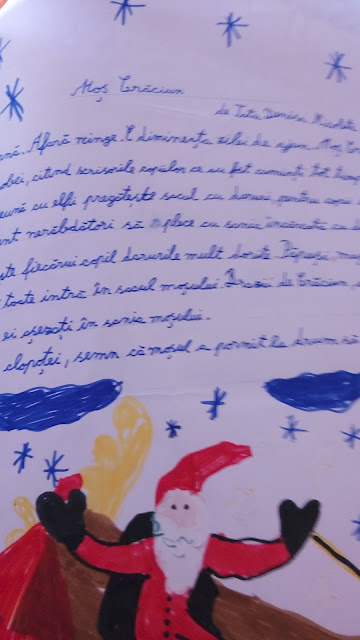 Moș Crăciun
de Tutu Denisa Nicoleta
Afară ninge. E dimineața zilei de ajun. Moș
citind scrisorile copiilor ce au fost cuminți tot
cu elfii pregătește sacul cu daruri, pentru copii
nerăbdători să plece cu sania încărcată cu
fiecărui copil darurile mult dorite. Păpuși,
toate intră în sacul moșului. Brazii de Crăciun,
ei așezați în sania moșului.
clopoței, semn că moșul a pornit la drum să